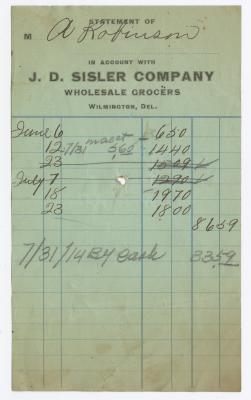 STATEMENT OF
M A Robinson
IN ACCOUNT WITH
J. D. SISLER COMPANY
WHOLESALE GROCERS
WILMINGTON, DEL.
June 6 — 650
12 7/31 5.60 — 1440
23 1509
July 7 1290
18 1970
23 1800
8659
7/31/14 By Cash 3359